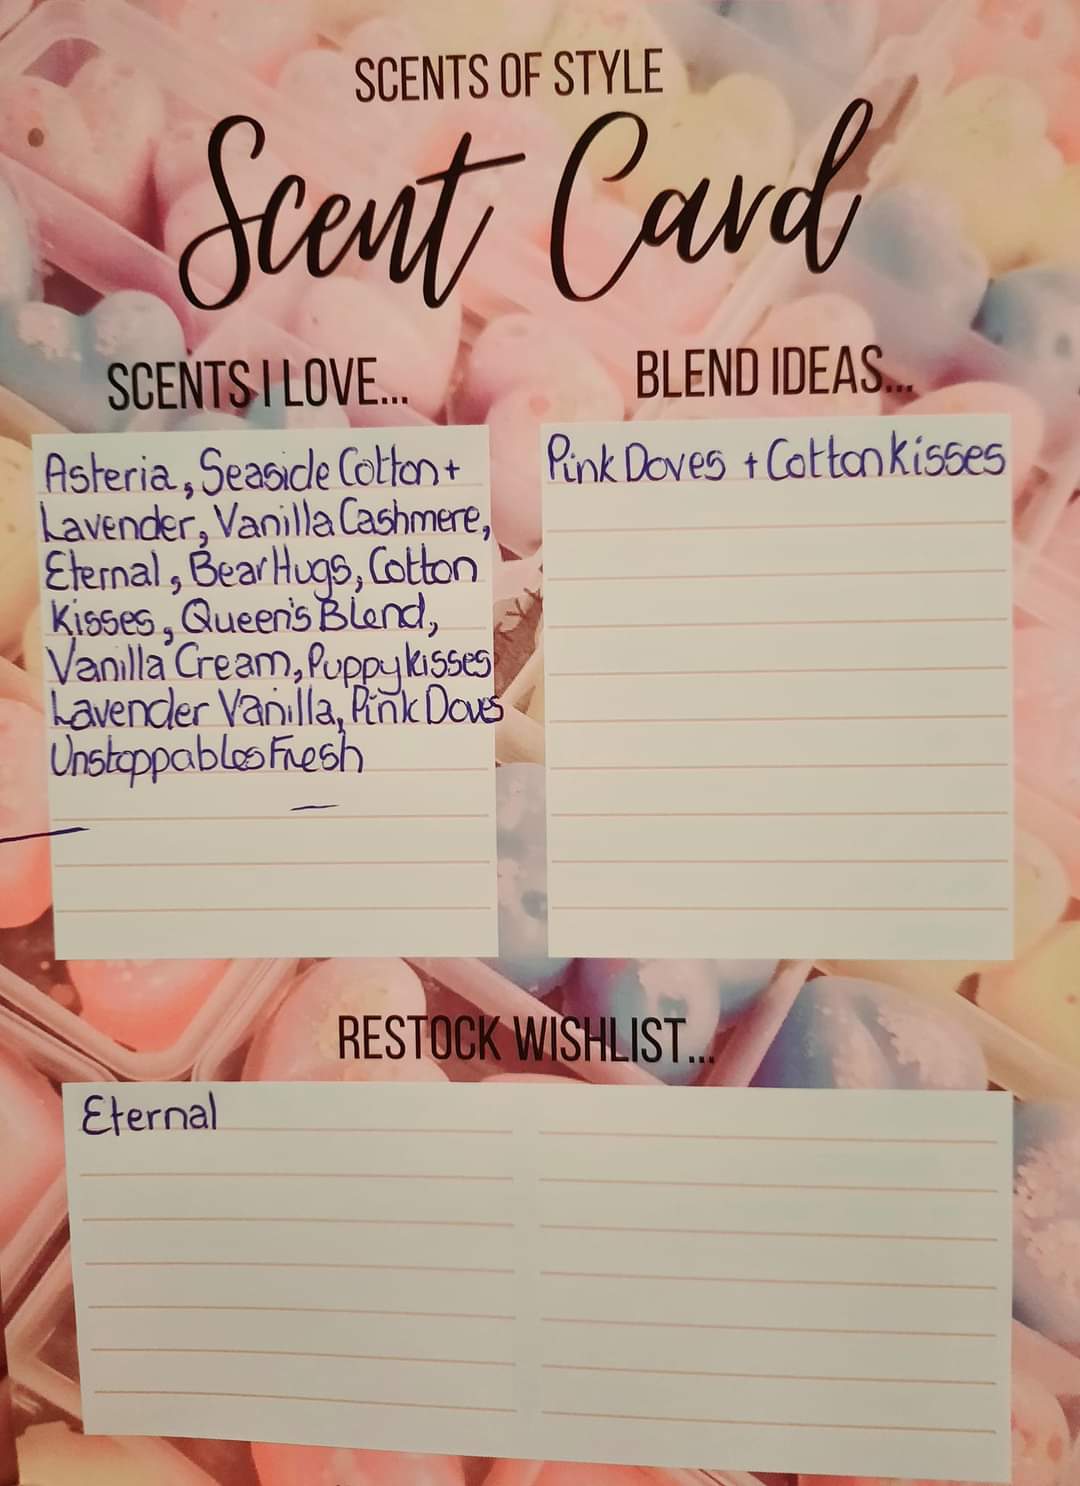 SCENTS OF STYLE
Scent Card
SCENTS I LOVE...
Asteria, Seaside Cotton +
Lavender, Vanilla Cashmere,
Eternal, Bear Hugs, Cotton
Kisses, Queen's Blend,
Vanilla Cream, Puppy kisses
Lavender Vanilla, Pink Doves
Unstoppables Fresh
BLEND IDEAS...
Pink Doves + Cotton kisses
RESTOCK WISHLIST...
Eternal